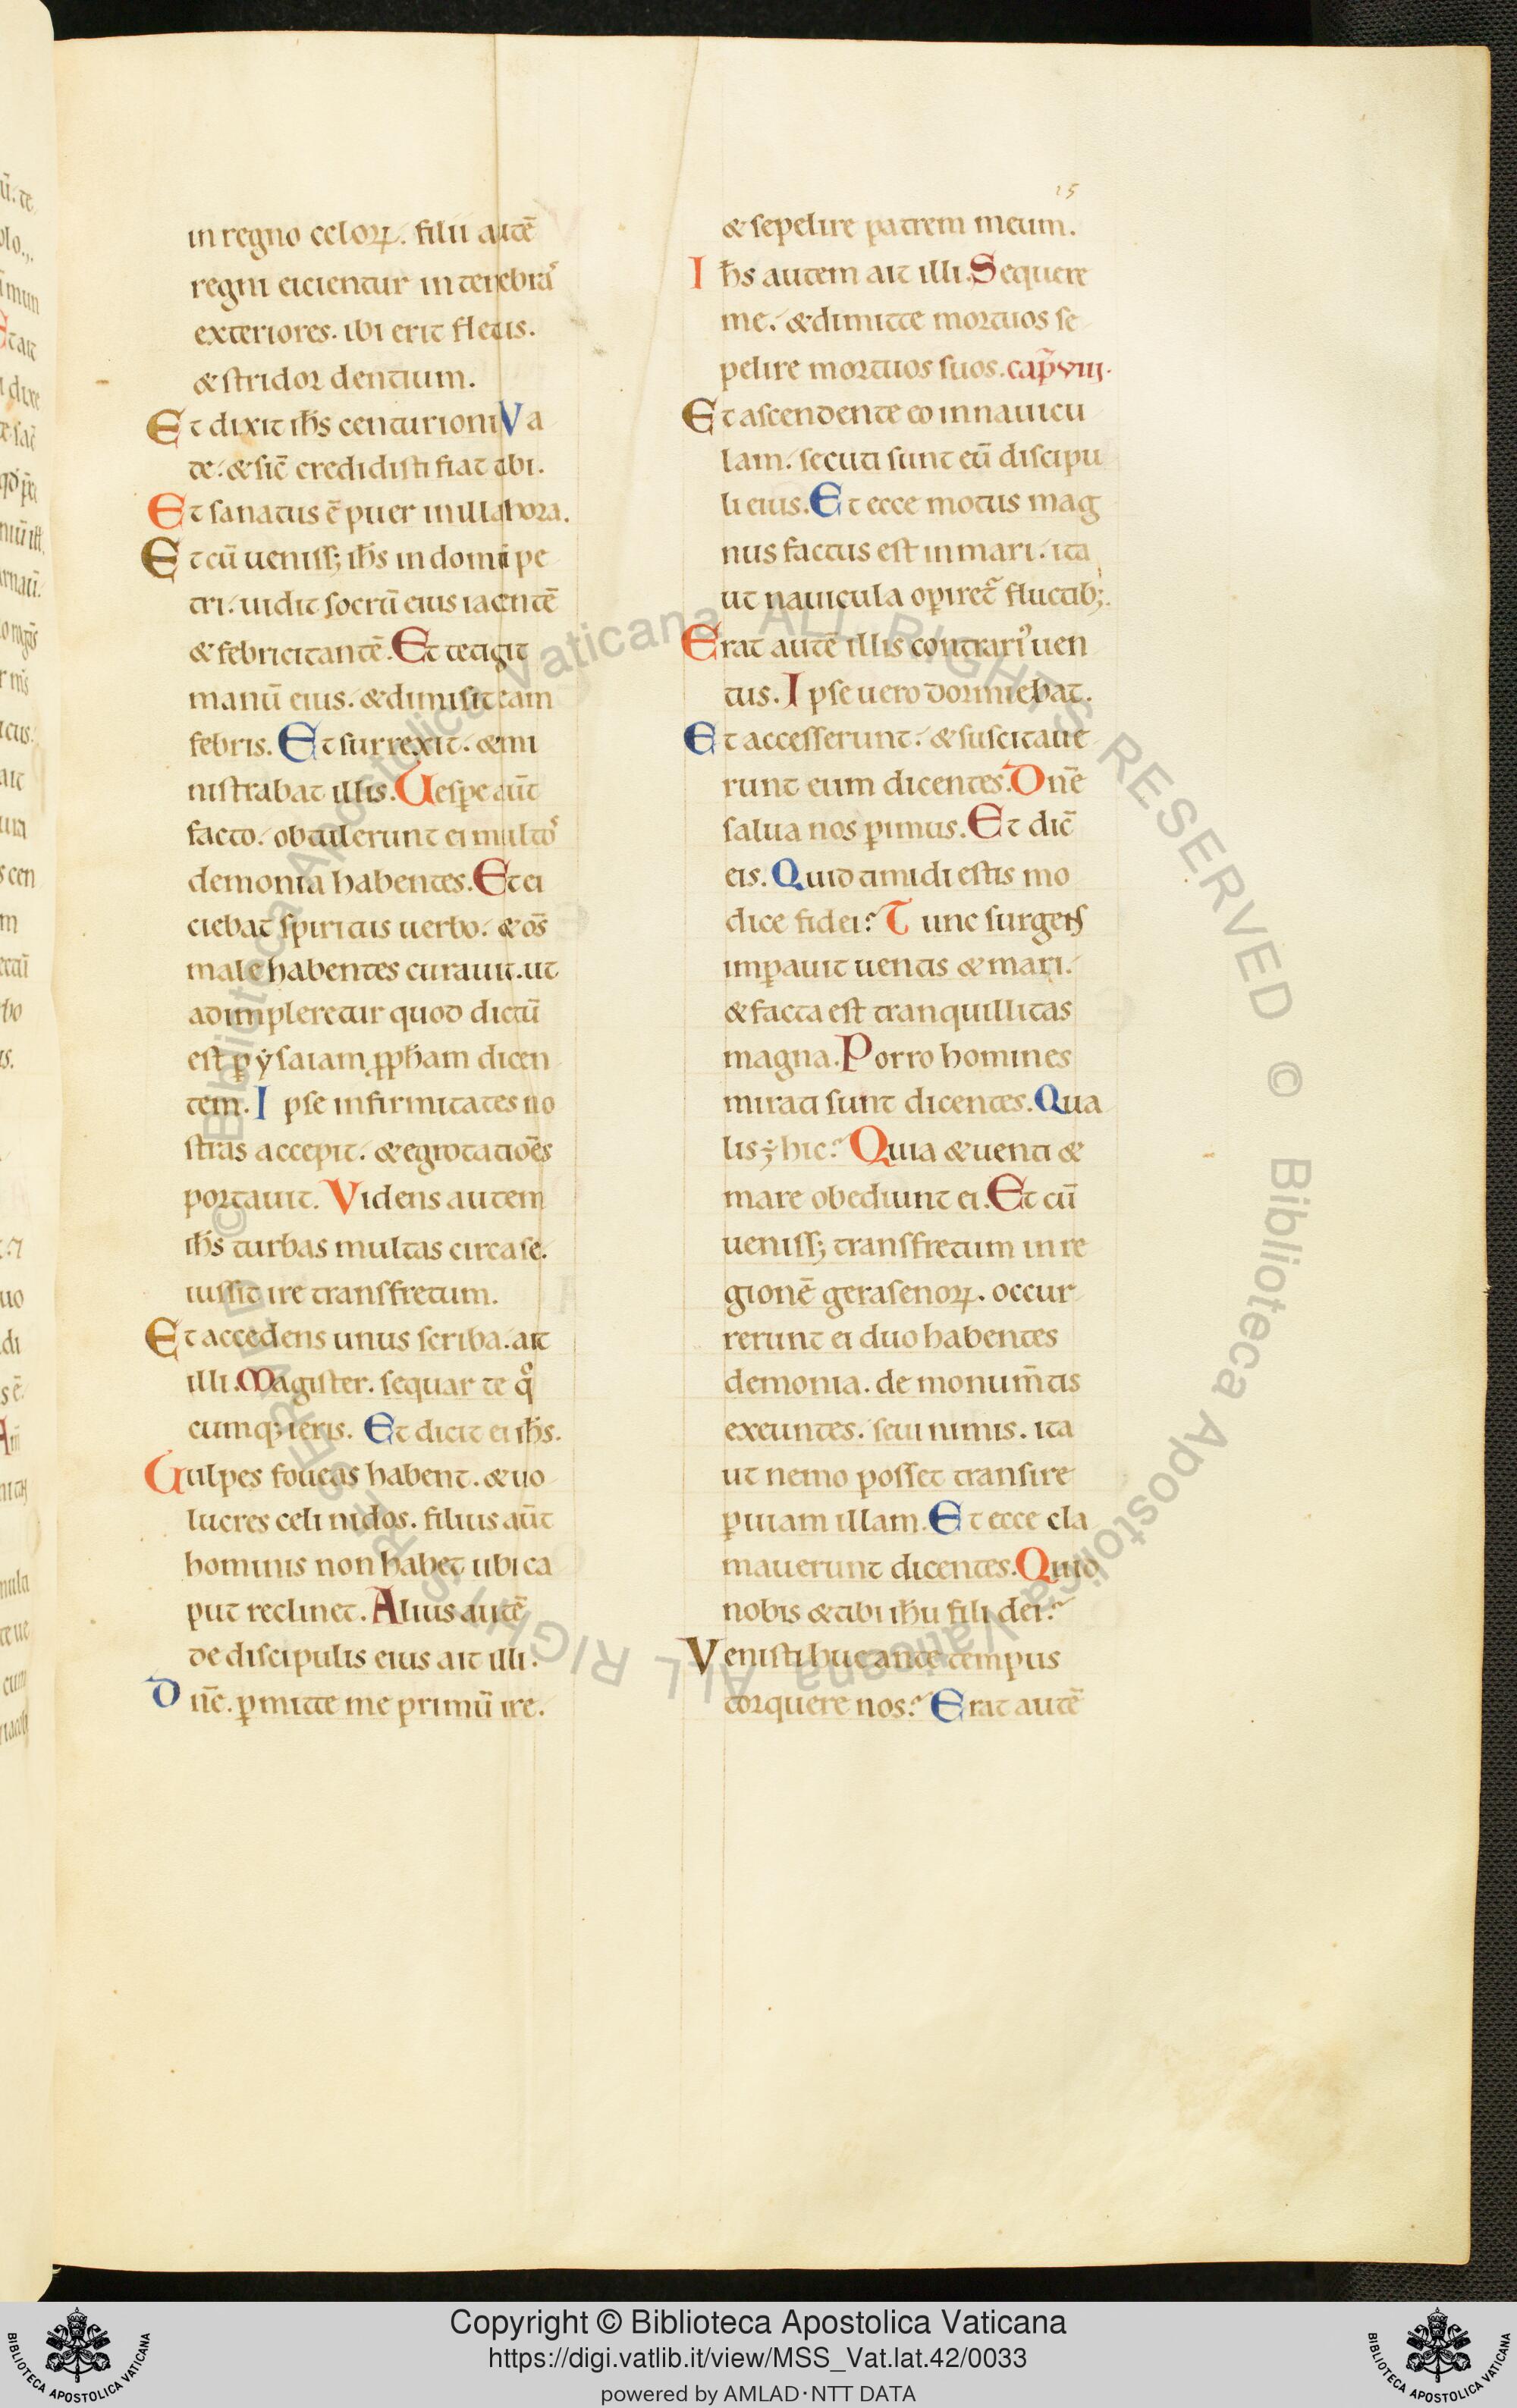 25
in regno celoꝝ. filii autē
regni eicientur in tenebraˢ
exteriores. ibi erit fletus.
& stridor dentium.
Et dixit ih̄s centurioni Va
de. & sic̄ credidisti fiat tibi.
Et sanatus ē puer in illa hora.
Et cū ueniss; ih̄s in domū pe
tri. uidit socrū eius iacentē
& febricitantē. Et tetigit
manū eius. & dimisit eam
febris. Et surrexit. & mi
nistrabat illis. Uesꝑe aūt
facto. obtulerunt ei multoˢ
demonia habentes. Et ei
ciebat spiritus uerbo. & om̄s
male habentes curauit. ut
adimpleretur quod dictū
est ꝑ ẏsaiam ꝓph̄am dicen
tem. Ipse infirmitates no
stras accepit. & egrotatiōes
portauit. Videns autem
ih̄s turbas multas circa se.
iussit ire transfretum.
Et accedens unus scriba. ait
illi. Magister. sequar te qͦ
cumq; ieris. Et dicit ei ih̄s.
Uulpes foueas habent. & uo
lucres celi nidos. filius aūt
hominis non habet ubi ca
put reclinet. Alius autē
de discipulis eius ait illi.
Dn̄e. ꝑmitte me primū ire.
& sepelire patrem meum.
Ih̄s autem ait illi. Sequere
me. & dimitte mortuos se
pelire mortuos suos. cap̄ viij.
Et ascendente eo in nauicu
lam. secuti sunt eū discipu
li eius. Et ecce motus mag
nus factus est in mari. ita
ut nauicula oꝑiret᷑ fluctib;.
Erat autē illis contrariꝰ uen
tus. Ipse uero dormiebat.
Et accesserunt. & suscitaue
runt eum dicentes. Dn̄e
salua nos ꝑimus. Et dic̄
eis. Quid timidi estis mo
dice fidei? Tunc surgens
imꝑauit uentis & mari.
& facta est tranquillitas
magna. Porro homines
mirati sunt dicentes. Qua
lis ÷ hic? Quia & uenti &
mare obediunt ei. Et cū
ueniss; transfretum in re
gionē gerasenoꝝ. occur
rerunt ei duo habentes
demonia. de monum̄tis
exeuntes. seui nimis. ita
ut nemo posset transire
ꝑ uiam illam. Et ecce cla
mauerunt dicentes. Quid
nobis & tibi ih̄u fili dei?
Venisti huc ante tempus
torquere nos? Erat autē
© Biblioteca Apostolica Vaticana ALL RIGHTS RESERVED © Biblioteca Apostolica Vaticana ALL RIGHTS RESERVED
Copyright © Biblioteca Apostolica Vaticana
https://digi.vatlib.it/view/MSS_Vat.lat.42/0033
powered by AMLAD·NTT DATA
BIBLIOTECA APOSTOLICA VATICANA
BIBLIOTECA APOSTOLICA VATICANA